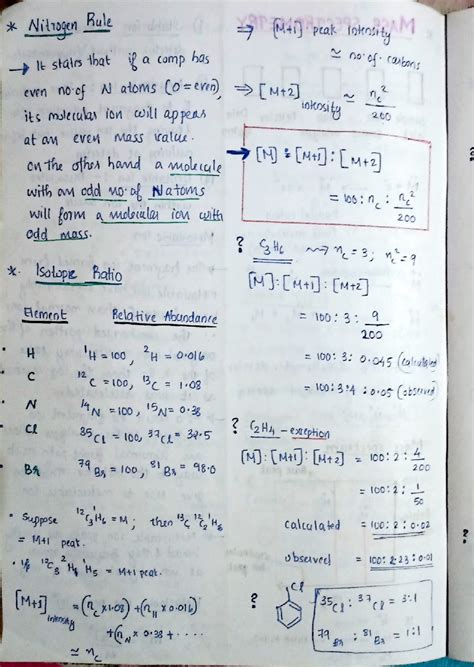 * Nitrogen Rule
→ It states that if a comp has
even no. of N atoms (0 = even),
its molecular ion will appear
at an even mass value.
on the other hand a molecule
with an odd no. of N atoms
will form a molecular ion with
odd mass.
* Isotopic Ratio
Element Relative Abundance
H ¹H = 100, ²H = 0.016
C ¹²C = 100, ¹³C = 1.08
N ¹⁴N = 100, ¹⁵N = 0.38
Cl ³⁵Cl = 100, ³⁷Cl = 32.5
Br ⁷⁹Br = 100, ⁸¹Br = 98.0
• Suppose ¹²C₃¹H₆ = M; then ¹³C ¹²C₂ ¹H₆
= M+1 peak.
• If ¹²C₃ ²H ¹H₅ = M+1 peak.
[M+1] intensity = (n_C × 1.08) + (n_H × 0.016)
+ (n_N × 0.38 + ....
≃ n_C
→ [M+1] peak intensity
≃ no. of carbons
→ [M+2] intensity ≃ n_C²/200
→ [M] : [M+1] : [M+2]
= 100 : n_C : n_C²/200
? C₃H₆ ⇝ n_C = 3; n_C² = 9
[M] : [M+1] : [M+2]
= 100 : 3 : 9/200
= 100 : 3 : 0.045 (calculated)
= 100 : 3.4 : 0.05 (observed)
? C₂H₄ - exception
[M] : [M+1] : [M+2] = 100 : 2 : 4/200
= 100 : 2 : 1/50
calculated = 100 : 2 : 0.02
observed = 100 : 2.23 : 0.01
? Cl
³⁵Cl : ³⁷Cl = 3:1
⁷⁹Br : ⁸¹Br = 1:1